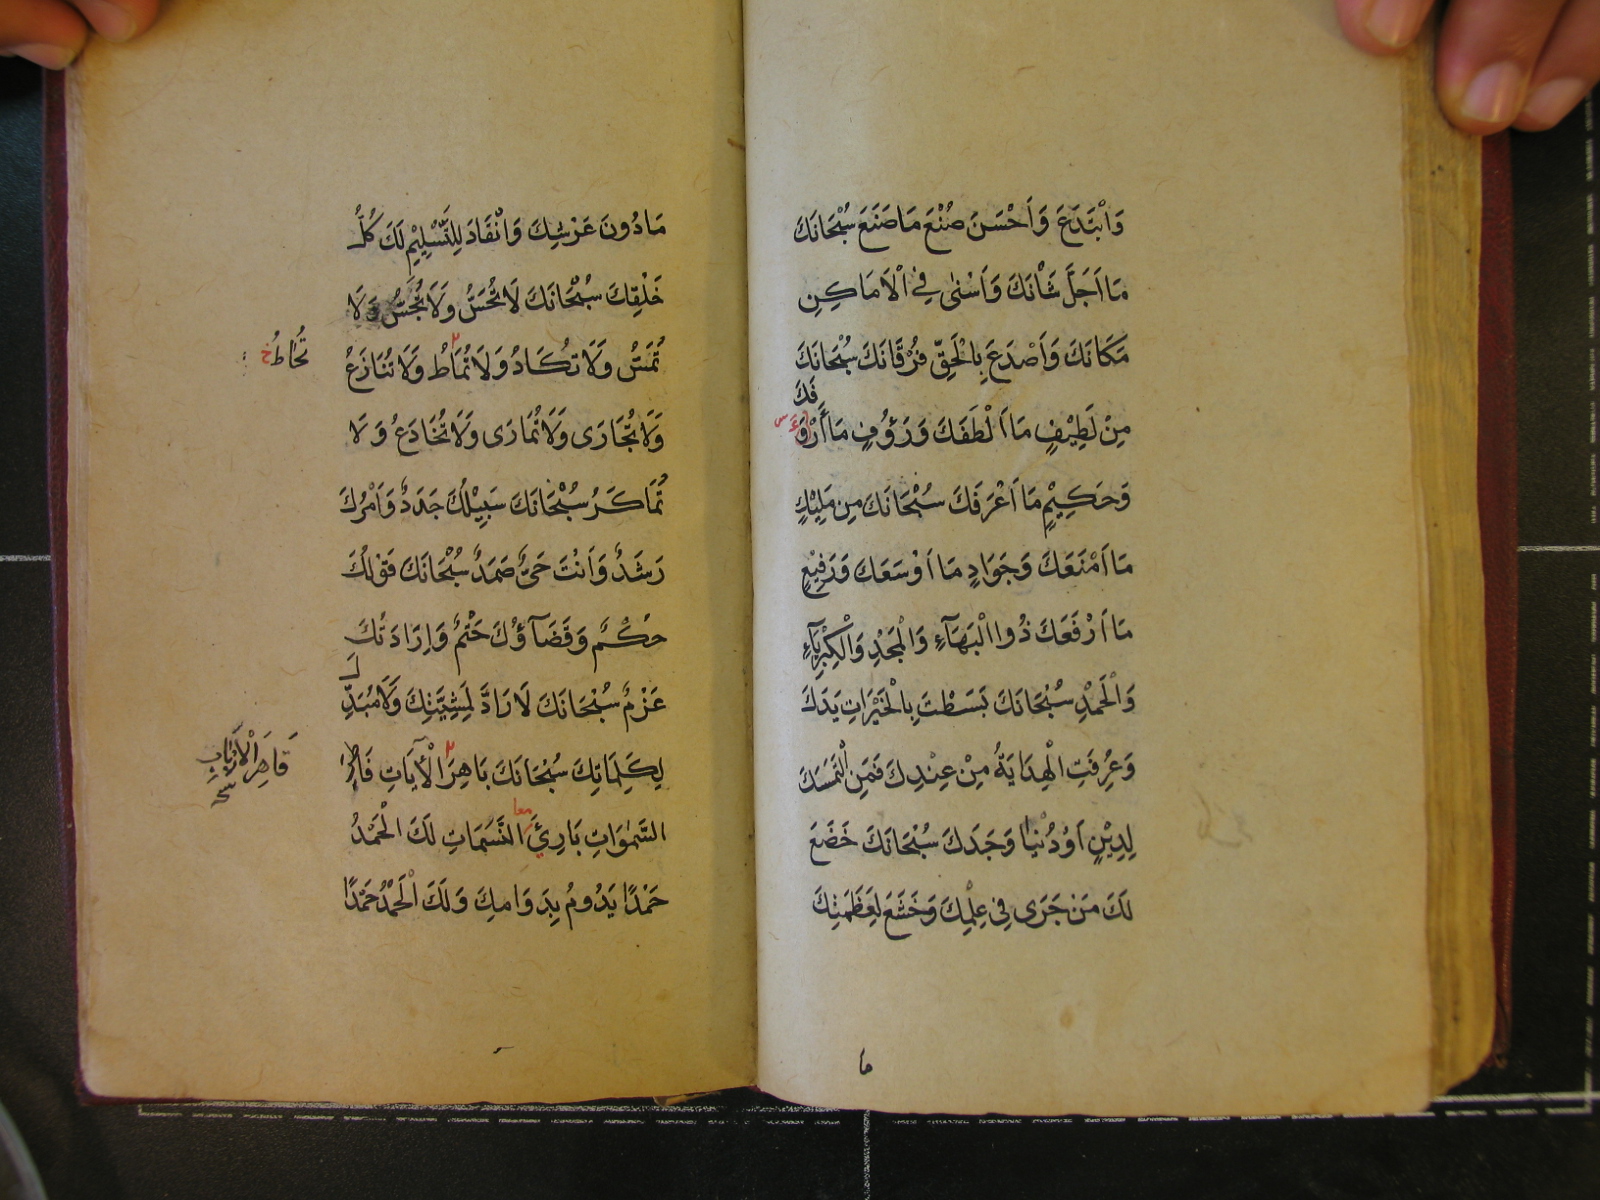 وَابْتَدَعَ وَاَحْسَنَ صُنْعَ مَا صَنَعَ سُبْحَانَكَ
مَا اَجَلَّ شَأْنَكَ وَاَسْنٰى فِي الْاَمَاكِنِ
مَكَانَكَ وَاَصْدَعَ بِالْحَقِّ فُرْقَانَكَ سُبْحَانَكَ
مِنْ لَطِيْفٍ مَا اَلْطَفَكَ وَرَؤُفٍ مَا أَرْوَفَكَ
وَحَكِيْمٍ مَا اَعْرَفَكَ سُبْحَانَكَ مِن مَلِيْكٍ
مَا اَمْنَعَكَ وَجَوَادٍ مَا اَوْسَعَكَ وَرَفِيْعٍ
مَا اَرْفَعَكَ ذُوا الْبَهَآءِ وَالْمَجْدِ وَالْكِبْرِيَآءِ
وَالْحَمْدِ سُبْحَانَكَ بَسَطْتَ بِالْخَيْرَاتِ يَدَكَ
وَعُرِفَتِ الْهِدَايَةُ مِنْ عِنْدِكَ فَمَنِ الْتَمَسَكَ
لِدِيْنٍ اَوْ دُنْيَا وَجَدَكَ سُبْحَانَكَ خَضَعَ
لَكَ مَنْ جَرَى فِي عِلْمِكَ وَخَشَعَ لِعَظَمَتِكَ
ما
مَا دُونَ عَرْشِكَ وَانْقَادَ لِلتَّسْلِيْمِ لَكَ كُلُّ
خَلْقِكَ سُبْحَانَكَ لَا تُحَسُّ وَلَا تُجَسُّ وَلَا
تُمَسُّ وَلَا تُكَادُ وَلَا تُمَاطُ وَلَا تُنَازَعُ
تُحَاطُ خ
وَلَا تُجَارَى وَلَا تُمَارَى وَلَا تُخَادَعُ وَلَا
تُمَاكَرُ سُبْحَانَكَ سَبِيْلُكَ جَدَدٌ وَاَمْرُكَ
رَشَدٌ وَاَنْتَ حَيٌّ صَمَدٌ سُبْحَانَكَ قَوْلُكَ
حُكْمٌ وَقَضَآؤُكَ حَتْمٌ وَاِرَادَتُكَ
عَزْمٌ سُبْحَانَكَ لَا رَادَّ لِمَشِيَّتِكَ وَلَا مُبَدِّلَ
لِكَلِمَاتِكَ سُبْحَانَكَ بَاهِرَ الْآيَاتِ فَاطِرَ
قَاهِرَ الْاَرْبَابِ
السَّمٰوَاتِ بَارِئَ النَّسَمَاتِ لَكَ الْحَمْدُ
حَمْدًا يَدُومُ بِدَوَامِكَ وَلَكَ الْحَمْدُ حَمْدًا